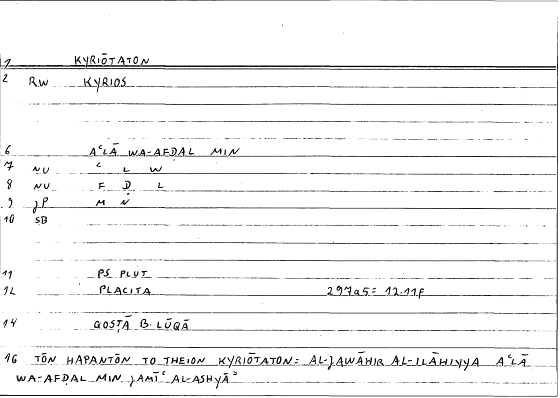 1 KYRIŌTATON
2 RW KYRIOS
6 AʿLĀ WA-AFDAL MIN
7 NU ʿ L W
8 NU F D L
9 JP M N
10 SB
11 PS PLUT
12 PLACITA 297a5 = 12.11f
14 QOSṬĀ B. LŪQĀ
16 TŌN HAPANTŌN TO THEION KYRIŌTATON: AL-JAWĀHIR AL-ILĀHIYYA AʿLĀ
WA-AFDAL MIN JAMĪʿ AL-ASHYĀʾ